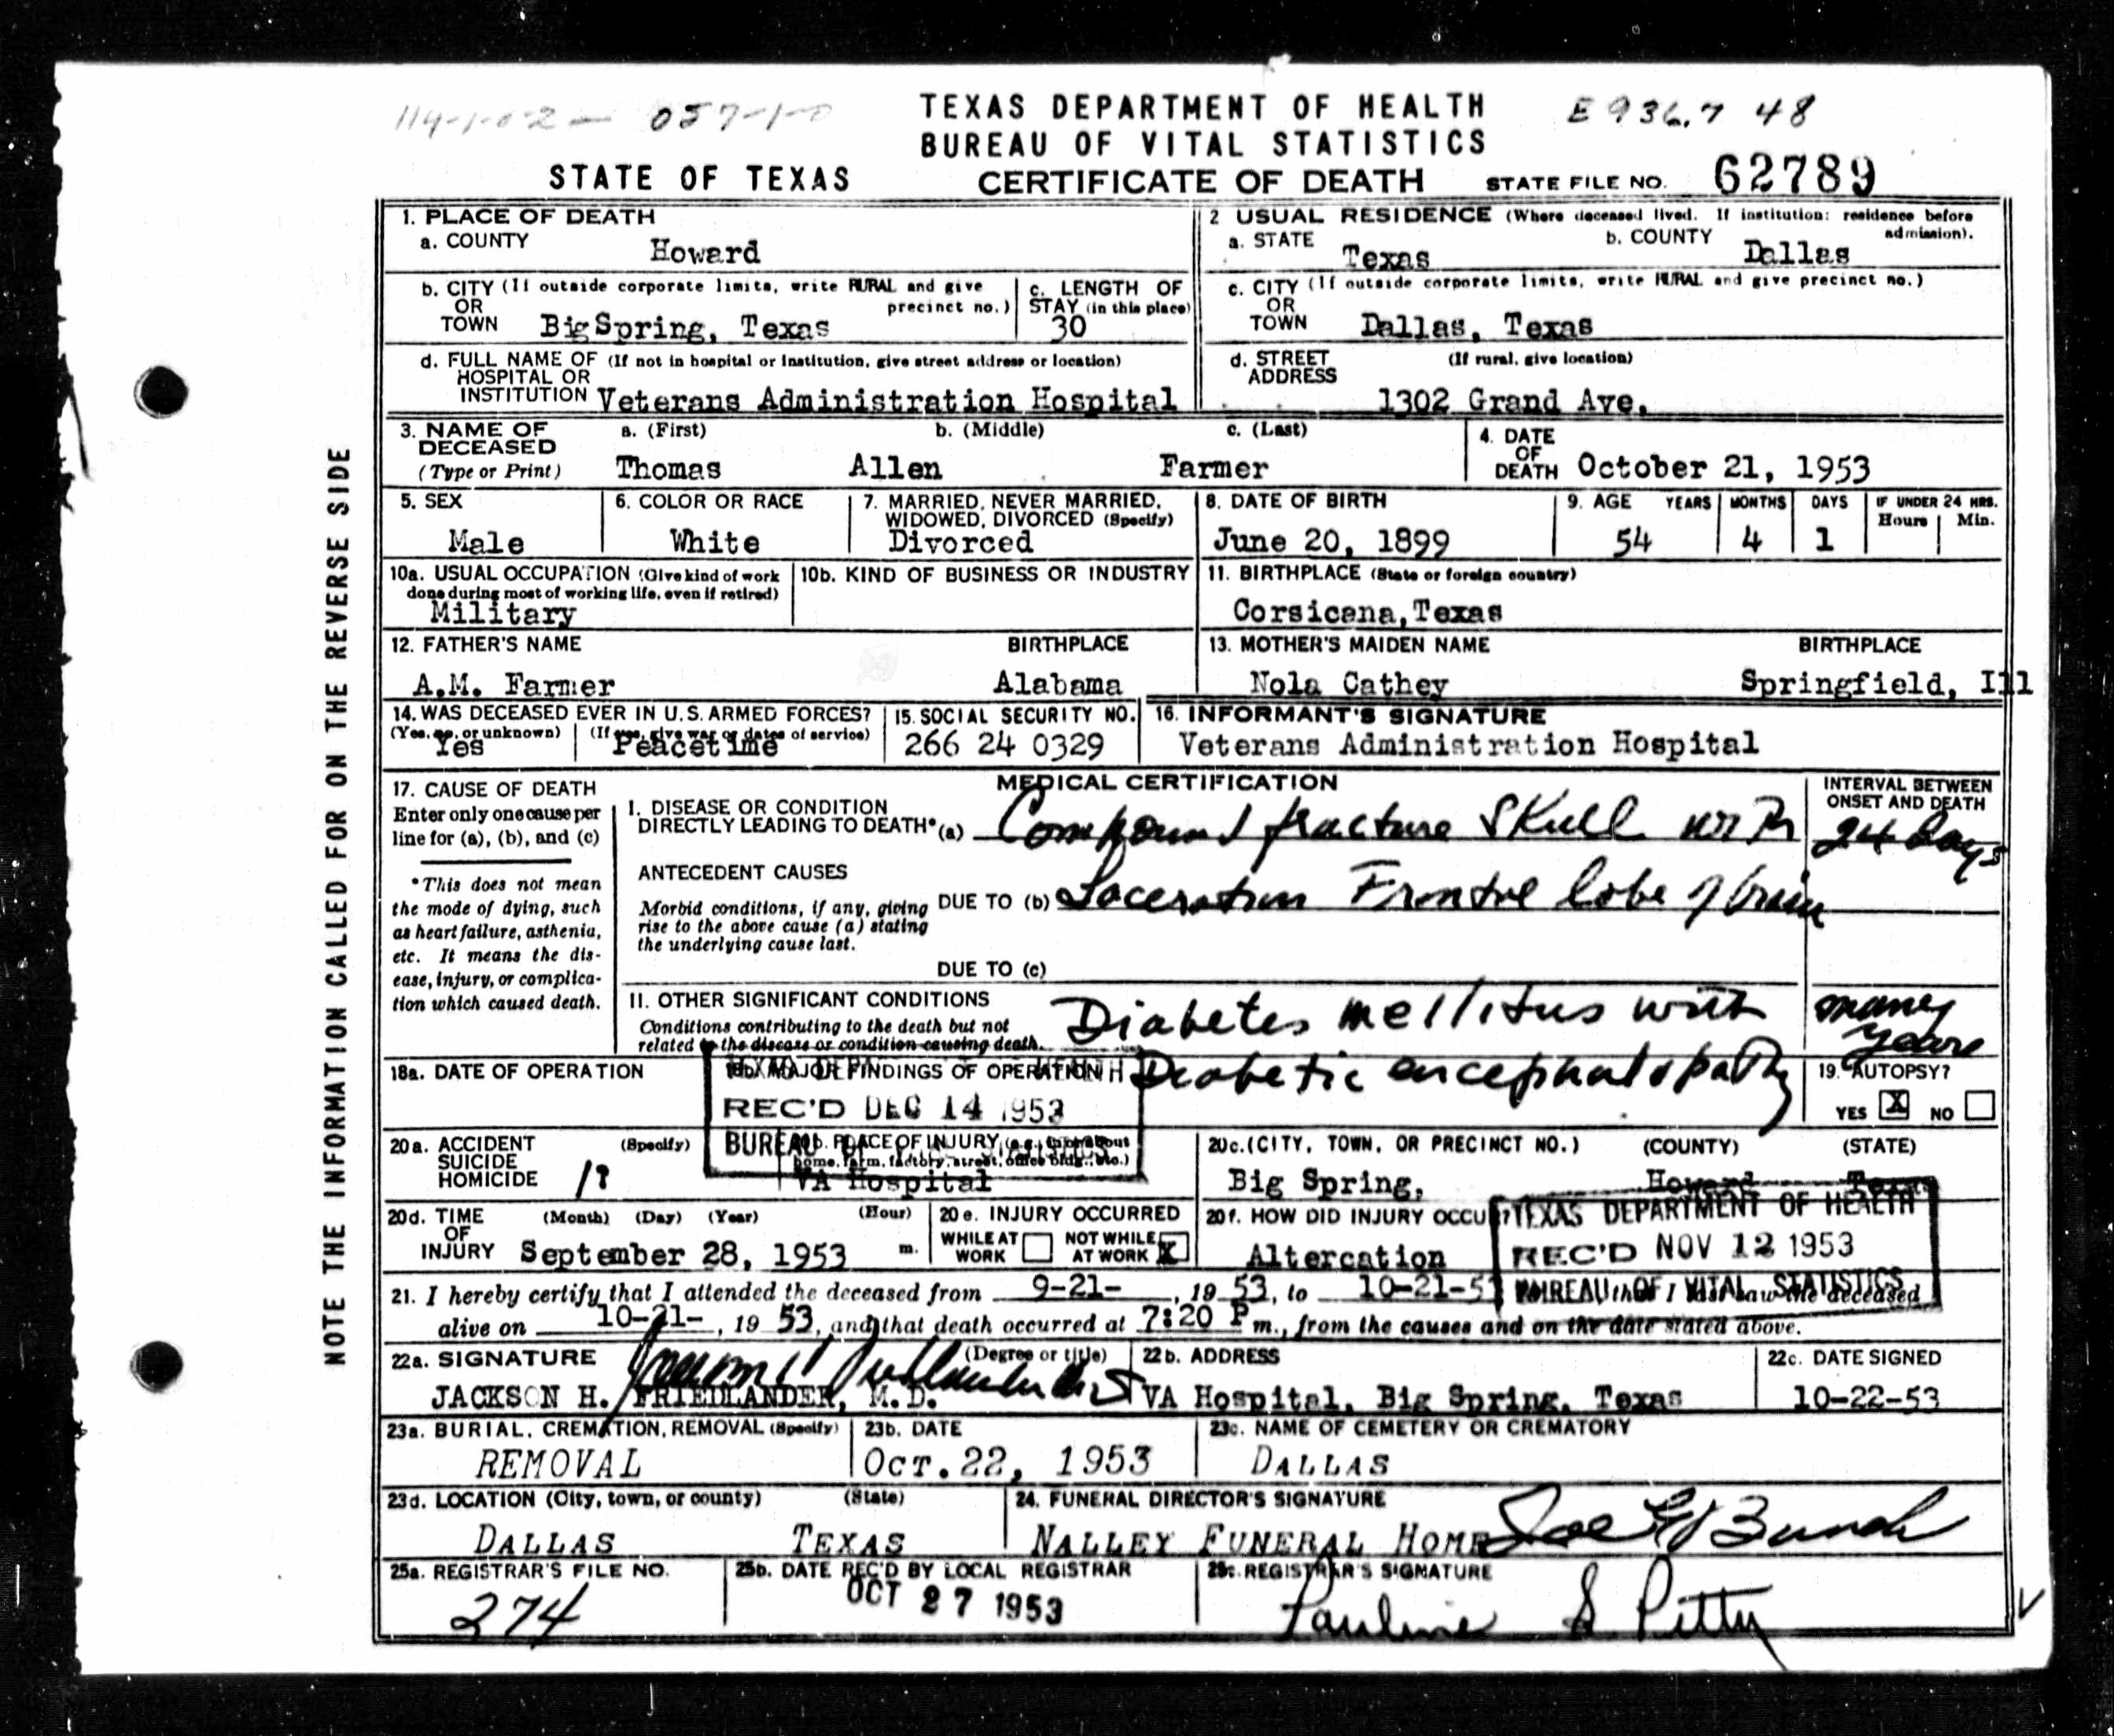 114-1-02 — 057-1-0
TEXAS DEPARTMENT OF HEALTH
BUREAU OF VITAL STATISTICS
E 936.7 48
STATE OF TEXAS CERTIFICATE OF DEATH STATE FILE NO. 62789
NOTE THE INFORMATION CALLED FOR ON THE REVERSE SIDE
1. PLACE OF DEATH
a. COUNTY Howard
2 USUAL RESIDENCE (Where deceased lived. If institution: residence before admission).
a. STATE Texas b. COUNTY Dallas
b. CITY (If outside corporate limits, write RURAL and give precinct no.)
OR
TOWN BigSpring, Texas
c. LENGTH OF
STAY (in this place)
30
c. CITY (If outside corporate limits, write RURAL and give precinct no.)
OR
TOWN Dallas, Texas
d. FULL NAME OF (If not in hospital or institution, give street address or location)
HOSPITAL OR
INSTITUTION Veterans Administration Hospital
d. STREET (If rural, give location)
ADDRESS
1302 Grand Ave.
3. NAME OF a. (First) b. (Middle) c. (Last)
DECEASED
(Type or Print) Thomas Allen Farmer
4. DATE
OF
DEATH October 21, 1953
5. SEX
Male
6. COLOR OR RACE
White
7. MARRIED, NEVER MARRIED,
WIDOWED, DIVORCED (Specify)
Divorced
8. DATE OF BIRTH
June 20, 1899
9. AGE YEARS MONTHS DAYS IF UNDER 24 HRS.
Hours Min.
54 4 1
10a. USUAL OCCUPATION (Give kind of work
done during most of working life, even if retired)
Military
10b. KIND OF BUSINESS OR INDUSTRY
11. BIRTHPLACE (State or foreign country)
Corsicana,Texas
12. FATHER'S NAME BIRTHPLACE
A.M. Farmer Alabama
13. MOTHER'S MAIDEN NAME BIRTHPLACE
Nola Cathey Springfield, Ill
14. WAS DECEASED EVER IN U.S. ARMED FORCES?
(Yes, no, or unknown) (If yes, give war or dates of service)
Yes Peacetime
15. SOCIAL SECURITY NO.
266 24 0329
16. INFORMANT'S SIGNATURE
Veterans Administration Hospital
MEDICAL CERTIFICATION
17. CAUSE OF DEATH
Enter only one cause per
line for (a), (b), and (c)
*This does not mean
the mode of dying, such
as heart failure, asthenia,
etc. It means the dis-
ease, injury, or complica-
tion which caused death.
I. DISEASE OR CONDITION
DIRECTLY LEADING TO DEATH* (a) Compound fracture Skull with
INTERVAL BETWEEN
ONSET AND DEATH
24 days
ANTECEDENT CAUSES
Morbid conditions, if any, giving
rise to the above cause (a) stating
the underlying cause last.
DUE TO (b) Laceration Frontal lobe of brain
DUE TO (c)
II. OTHER SIGNIFICANT CONDITIONS
Conditions contributing to the death but not
related to the disease or condition causing death.
Diabetes mellitus with
Diabetic encephalopathy
many
years
18a. DATE OF OPERATION
18b. MAJOR FINDINGS OF OPERATION
REC'D DEC 14 1953
BUREAU OF VITAL STATISTICS
19. AUTOPSY?
YES X NO
20a. ACCIDENT (Specify)
SUICIDE
HOMICIDE
20b. PLACE OF INJURY (e.g., in or about
home, farm, factory, street, office bldg., etc.)
VA Hospital
20c. (CITY, TOWN, OR PRECINCT NO.) (COUNTY) (STATE)
Big Spring, Howard Texas
20d. TIME (Month) (Day) (Year) (Hour)
OF
INJURY September 28, 1953 m.
20e. INJURY OCCURRED
WHILE AT WORK NOT WHILE AT WORK X
20f. HOW DID INJURY OCCUR?
Altercation
TEXAS DEPARTMENT OF HEALTH
REC'D NOV 12 1953
BUREAU OF VITAL STATISTICS
21. I hereby certify that I attended the deceased from 9-21-, 19 53, to 10-21-53 that I last saw the deceased
alive on 10-21-, 19 53, and that death occurred at 7:20 P m., from the causes and on the date stated above.
22a. SIGNATURE (Degree or title)
JACKSON H. FRIEDLANDER, M.D.
22b. ADDRESS
VA Hospital, Big Spring, Texas
22c. DATE SIGNED
10-22-53
23a. BURIAL, CREMATION, REMOVAL (Specify)
REMOVAL
23b. DATE
Oct. 22, 1953
23c. NAME OF CEMETERY OR CREMATORY
DALLAS
23d. LOCATION (City, town, or county) (State)
DALLAS TEXAS
24. FUNERAL DIRECTOR'S SIGNATURE
NALLEY FUNERAL HOME
25a. REGISTRAR'S FILE NO.
274
25b. DATE REC'D BY LOCAL REGISTRAR
OCT 27 1953
25c. REGISTRAR'S SIGNATURE
Pauline S Petty